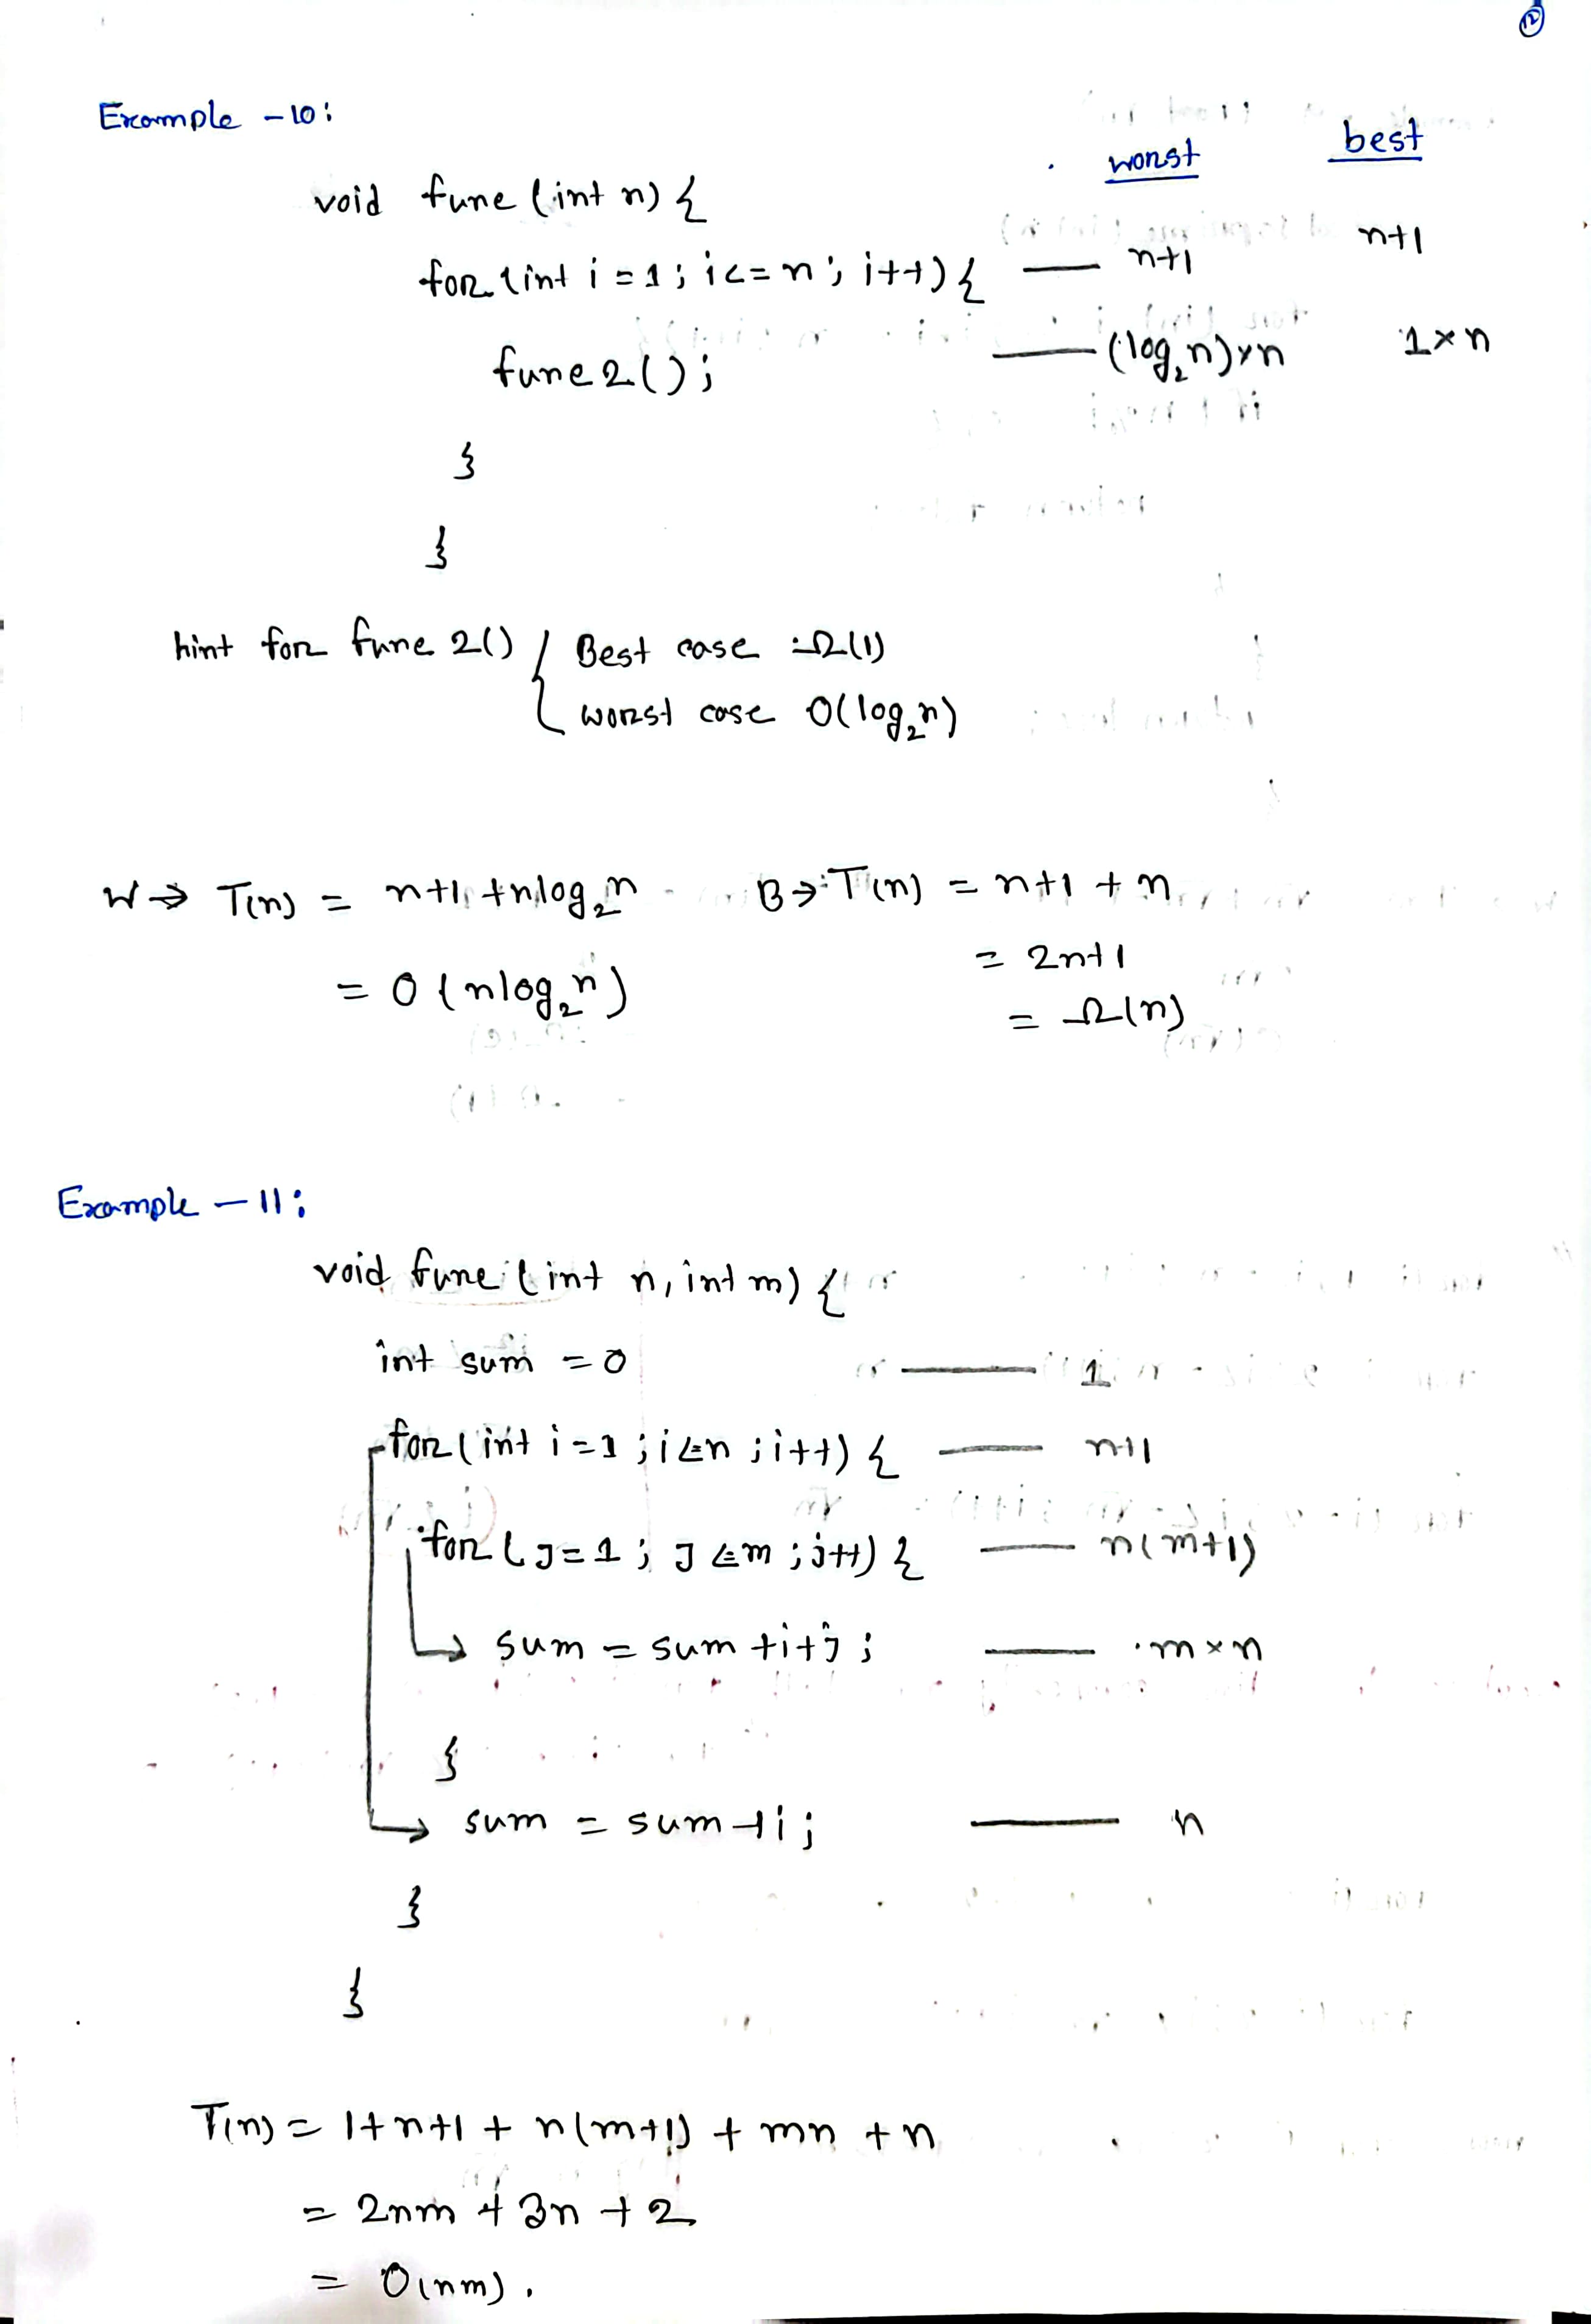 12
Example - 10:
worst best
void func (int n) {
for (int i = 1; i <= n; i++) { — n+1 n+1
func2(); — (log₂n)×n 1×n
}
}
hint for func 2() { Best case :Ω(1)
worst case O(log₂n)
W ⇒ T(n) = n+1 + nlog₂n B ⇒ T(n) = n+1 + n
= 2n+1
= O(nlog₂n)
= Ω(n)
Example - 11:
void func (int n, int m) {
int sum = 0 — 1
for (int i = 1; i <= n; i++) { — n+1
for (J = 1; J <= m; j++) { — n(m+1)
→ sum = sum + i + j; — m×n
}
→ sum = sum + i; — n
}
}
T(n) = 1 + n+1 + n(m+1) + mn + n
= 2nm + 3n + 2
= O(nm).